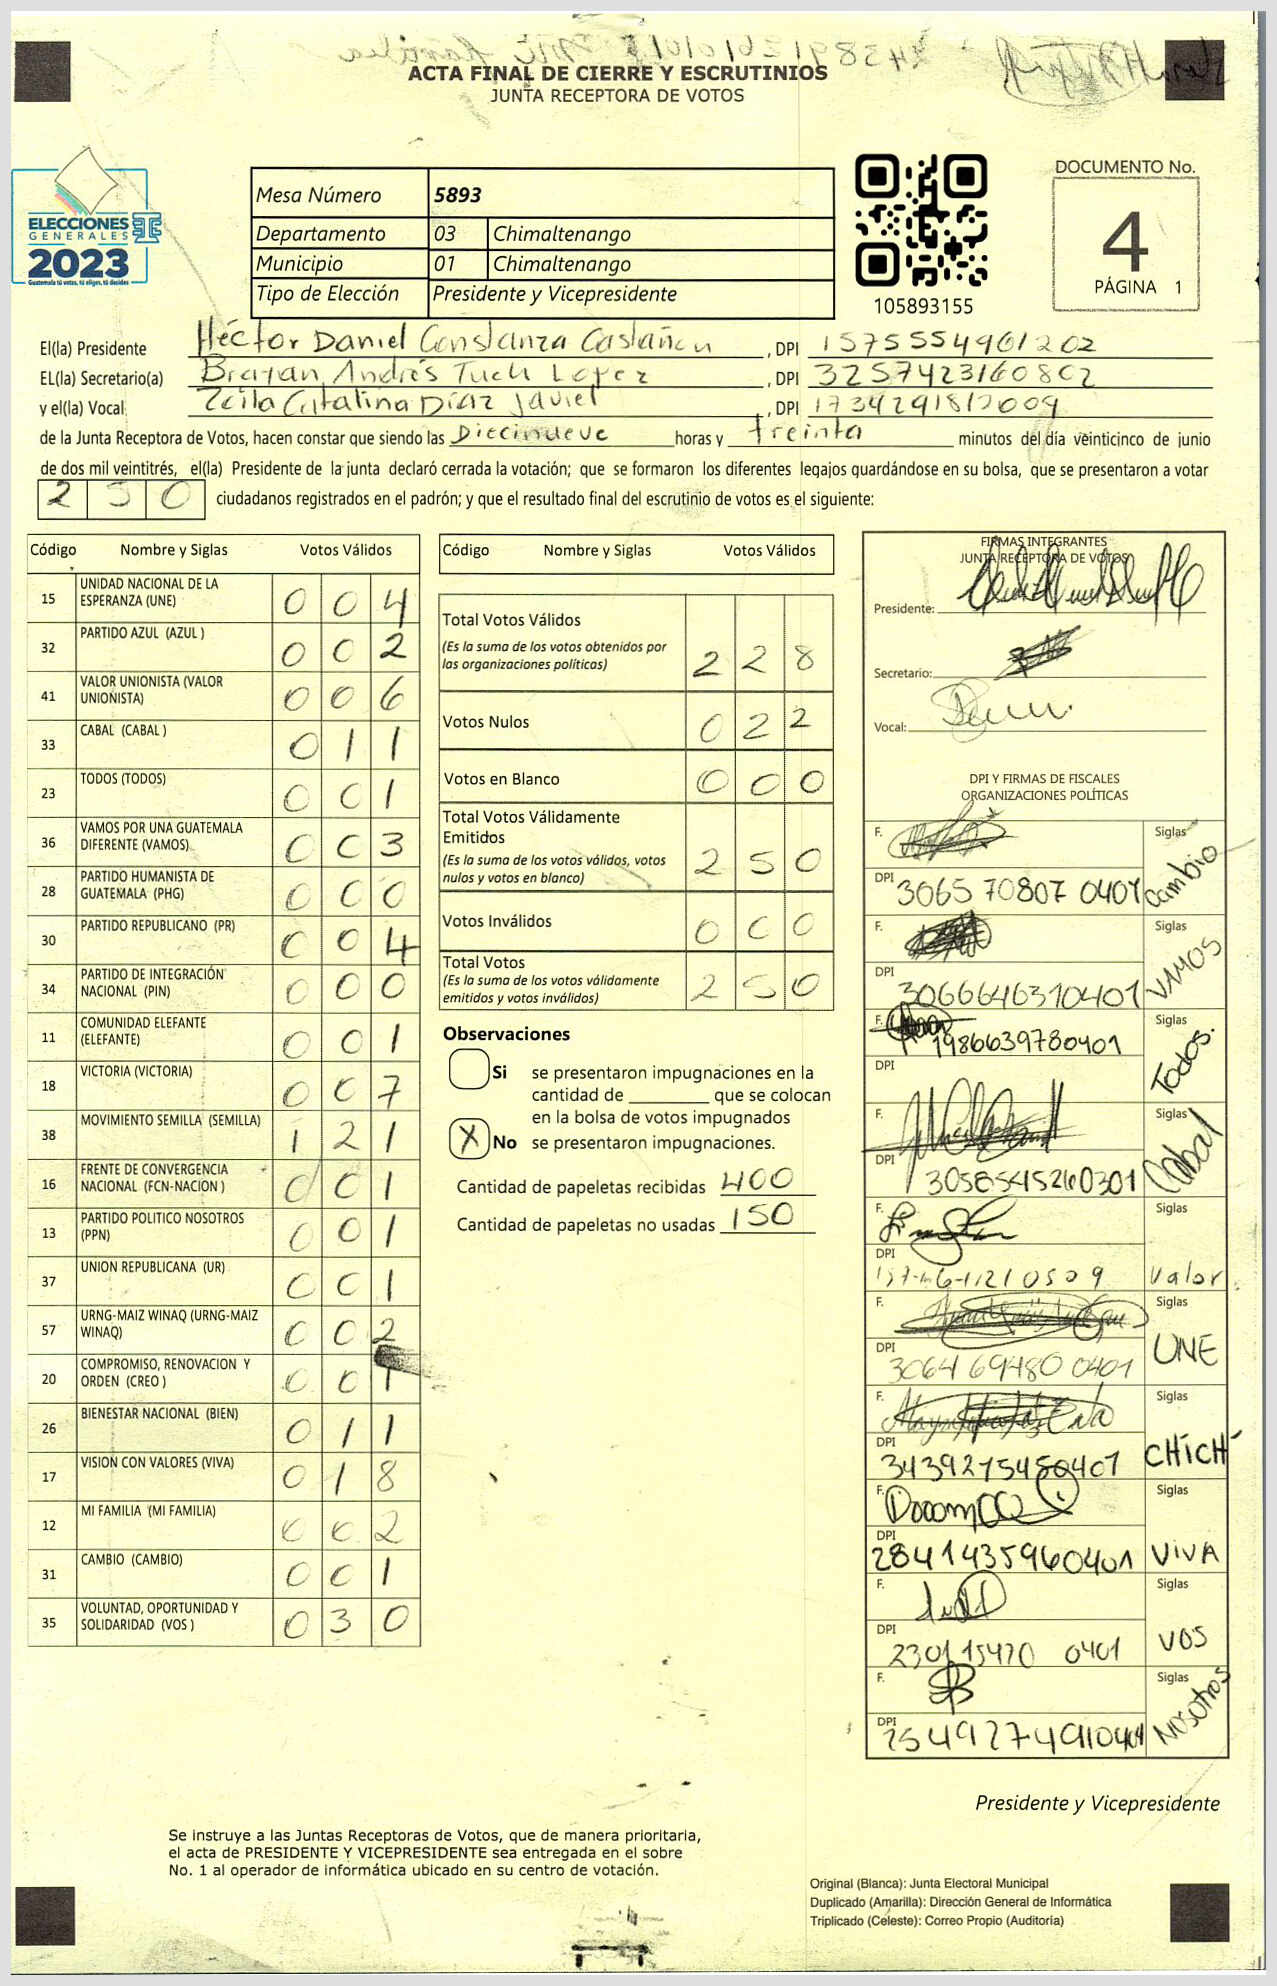 ACTA FINAL DE CIERRE Y ESCRUTINIOS
JUNTA RECEPTORA DE VOTOS
ELECCIONES
GENERALES
2023
Guatemala tú votas, tú eliges, tú decides
Mesa Número 5893
Departamento 03 Chimaltenango
Municipio 01 Chimaltenango
Tipo de Elección Presidente y Vicepresidente
105893155
DOCUMENTO No.
4
PÁGINA 1
El(la) Presidente Héctor Daniel Constanza Castañon, DPI 1575554961202
EL(la) Secretario(a) Brayan Andrés Tuch Lopez, DPI 3257423160802
y el(la) Vocal Zoila Catalina Díaz Javiel, DPI 1734291812009
de la Junta Receptora de Votos, hacen constar que siendo las Diecinueve horas y treinta minutos del día veinticinco de junio
de dos mil veintitrés, el(la) Presidente de la junta declaró cerrada la votación; que se formaron los diferentes legajos guardándose en su bolsa, que se presentaron a votar
250 ciudadanos registrados en el padrón; y que el resultado final del escrutinio de votos es el siguiente:
Código Nombre y Siglas Votos Válidos
15 UNIDAD NACIONAL DE LA ESPERANZA (UNE) 004
32 PARTIDO AZUL (AZUL ) 002
41 VALOR UNIONISTA (VALOR UNIONISTA) 006
33 CABAL (CABAL ) 011
23 TODOS (TODOS) 001
36 VAMOS POR UNA GUATEMALA DIFERENTE (VAMOS) 003
28 PARTIDO HUMANISTA DE GUATEMALA (PHG) 000
30 PARTIDO REPUBLICANO (PR) 004
34 PARTIDO DE INTEGRACIÓN NACIONAL (PIN) 000
11 COMUNIDAD ELEFANTE (ELEFANTE) 001
18 VICTORIA (VICTORIA) 007
38 MOVIMIENTO SEMILLA (SEMILLA) 121
16 FRENTE DE CONVERGENCIA NACIONAL (FCN-NACION ) 001
13 PARTIDO POLITICO NOSOTROS (PPN) 001
37 UNION REPUBLICANA (UR) 001
57 URNG-MAIZ WINAQ (URNG-MAIZ WINAQ) 002
20 COMPROMISO, RENOVACION Y ORDEN (CREO ) 001
26 BIENESTAR NACIONAL (BIEN) 011
17 VISION CON VALORES (VIVA) 018
12 MI FAMILIA (MI FAMILIA) 002
31 CAMBIO (CAMBIO) 001
35 VOLUNTAD, OPORTUNIDAD Y SOLIDARIDAD (VOS ) 030
Código Nombre y Siglas Votos Válidos
Total Votos Válidos
(Es la suma de los votos obtenidos por las organizaciones políticas) 228
Votos Nulos 022
Votos en Blanco 000
Total Votos Válidamente Emitidos
(Es la suma de los votos válidos, votos nulos y votos en blanco) 250
Votos Inválidos 000
Total Votos
(Es la suma de los votos válidamente emitidos y votos inválidos) 250
Observaciones
Si se presentaron impugnaciones en la
cantidad de ________ que se colocan
en la bolsa de votos impugnados
X No se presentaron impugnaciones.
Cantidad de papeletas recibidas 400
Cantidad de papeletas no usadas 150
FIRMAS INTEGRANTES
JUNTA RECEPTORA DE VOTOS
Presidente:
Secretario:
Vocal:
DPI Y FIRMAS DE FISCALES
ORGANIZACIONES POLÍTICAS
F. Siglas
DPI 3065 70807 0401 Cambio
F. Siglas
DPI 3066646310401 VAMOS
F. Siglas
1986639780401
DPI Todos.
F. Siglas
DPI 3058545260301 Cabal
F. Siglas
DPI Valor
F. Siglas
DPI 3064 69480 0401 UNE
F. Siglas
DPI 3439275450401 CHICH
F. Siglas
DPI 2841435960401 VIVA
F. Siglas
DPI 2301 15470 0401 VOS
F. Siglas
DPI 2549274910401 NOSOTROS
Presidente y Vicepresidente
Se instruye a las Juntas Receptoras de Votos, que de manera prioritaria,
el acta de PRESIDENTE Y VICEPRESIDENTE sea entregada en el sobre
No. 1 al operador de informática ubicado en su centro de votación.
Original (Blanca): Junta Electoral Municipal
Duplicado (Amarilla): Dirección General de Informática
Triplicado (Celeste): Correo Propio (Auditoría)